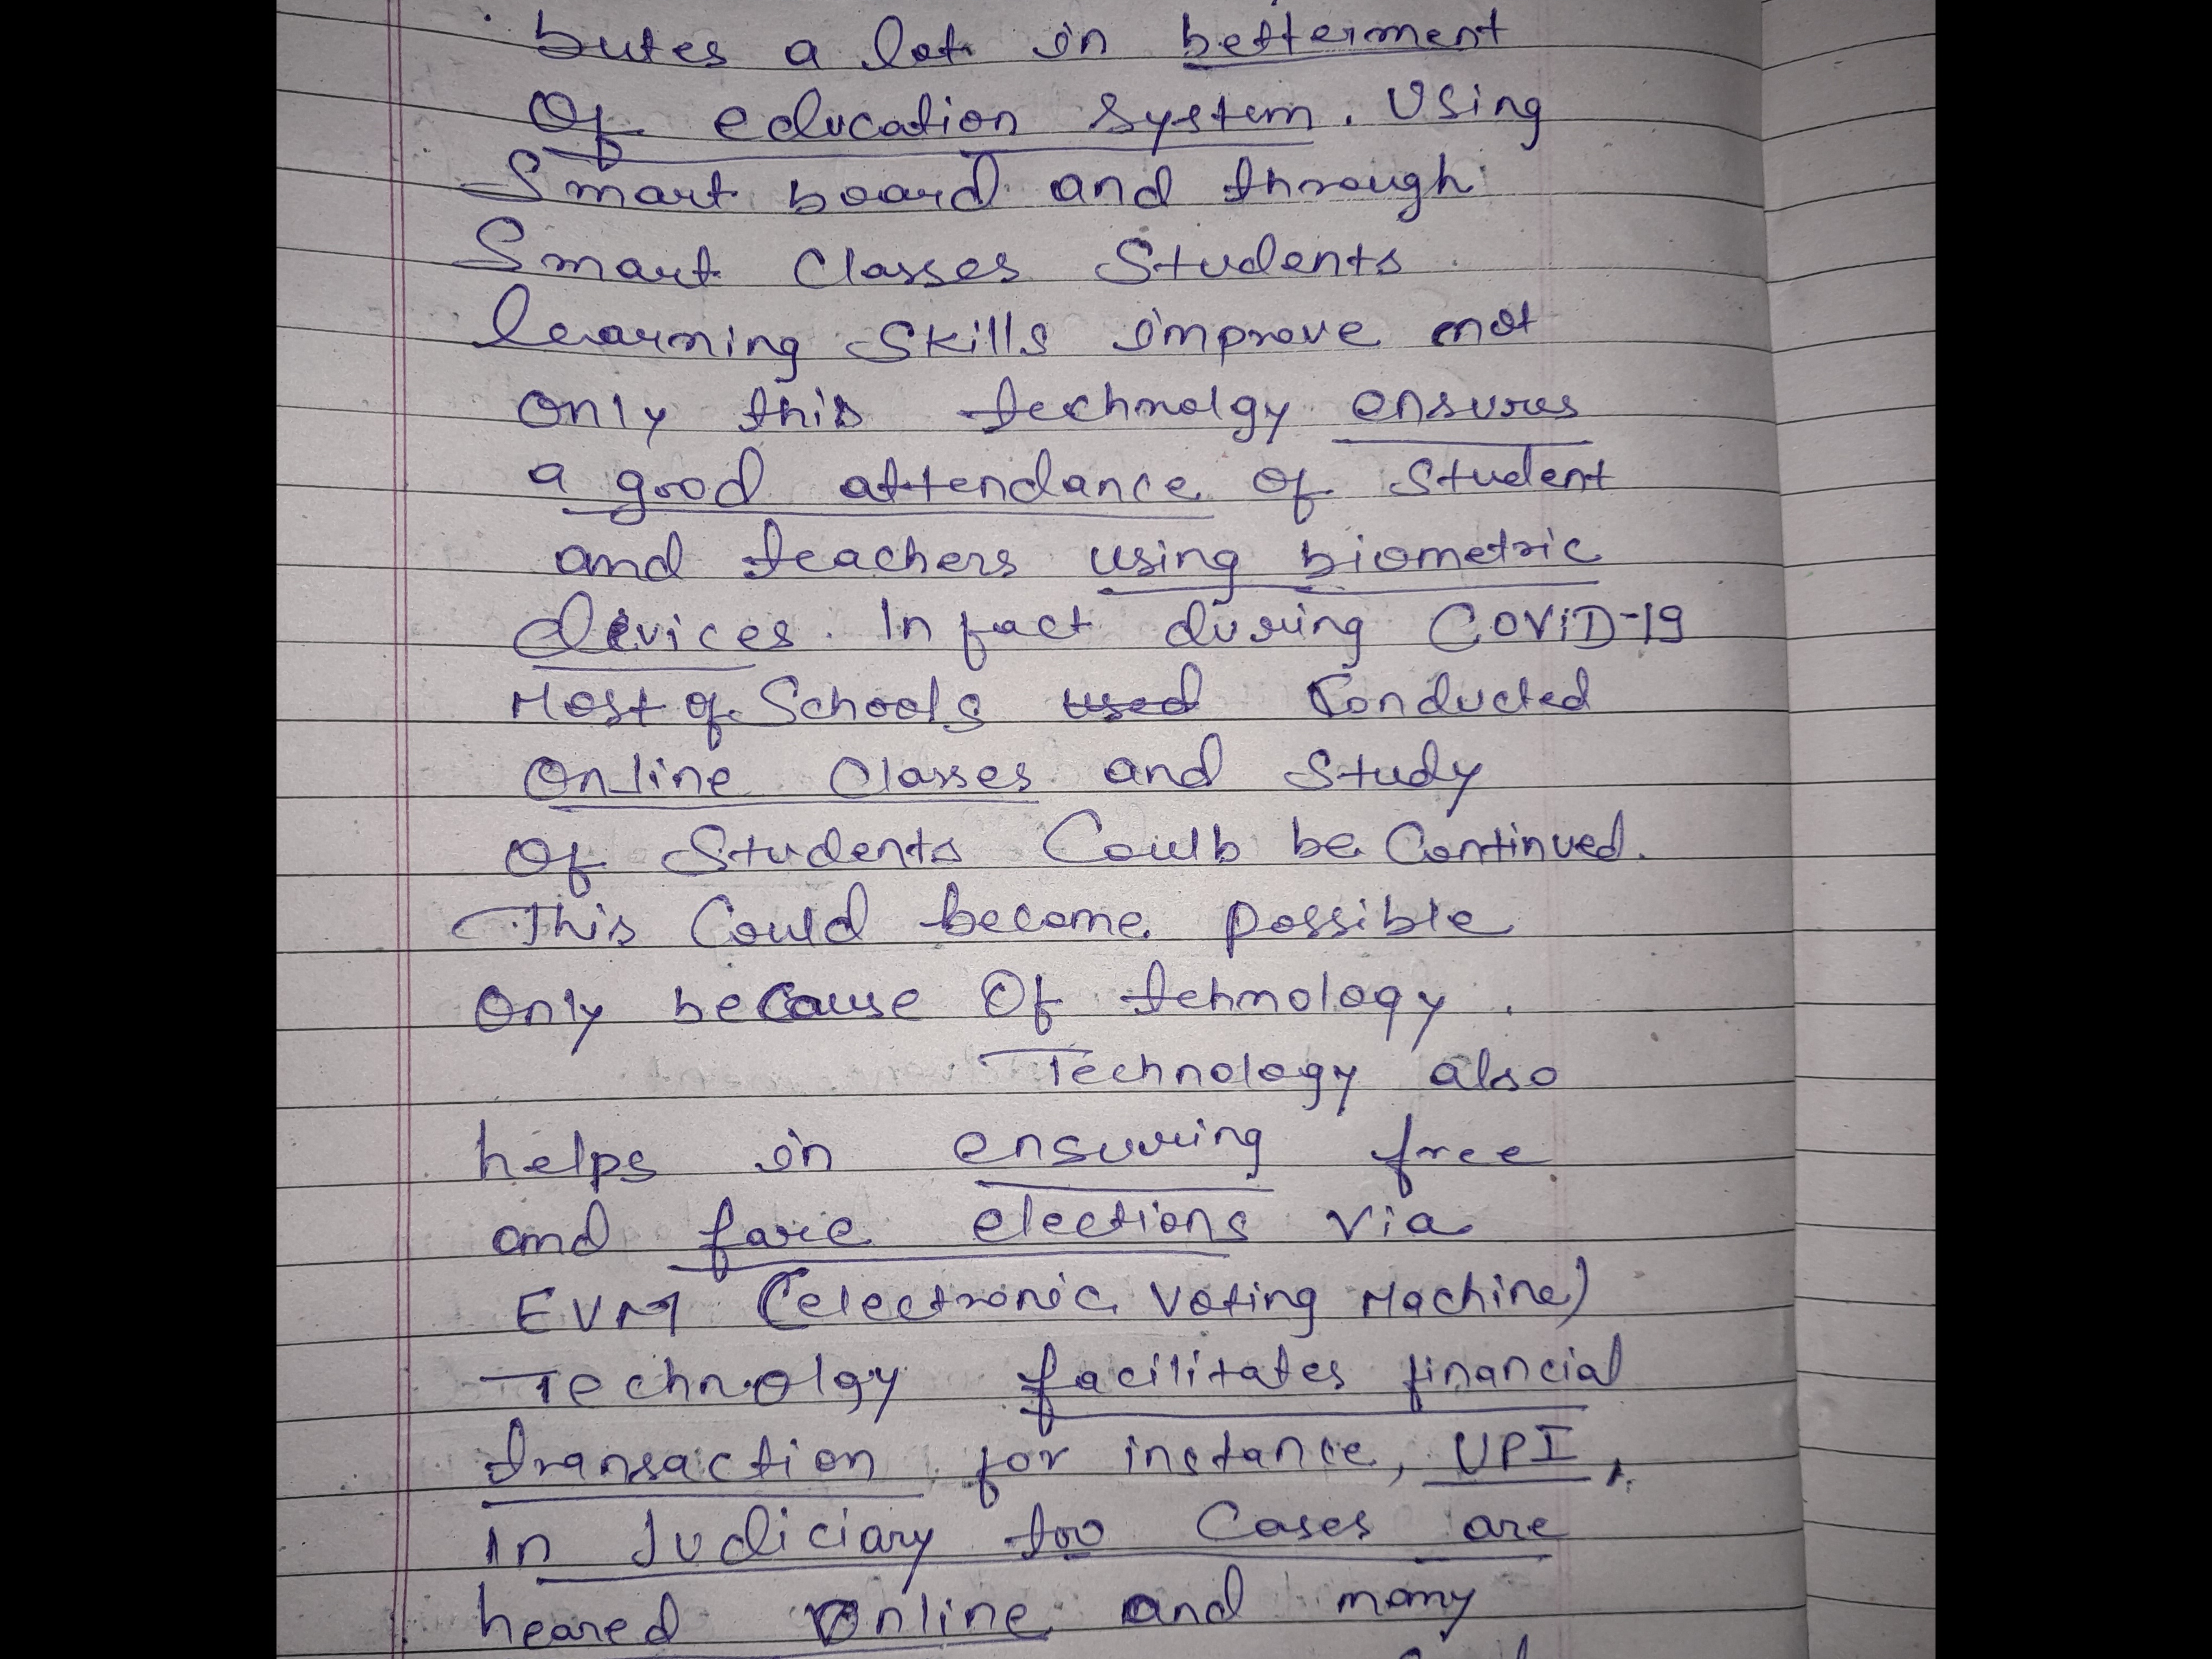 butes a lot in betterment
Of education System. Using
Smart board and through
Smart Classes Students
learning Skills improve not
only this technolgy ensures
a good attendance of Student
and teachers using biometric
devices. In fact during COVID-19
Most of Schools used Conducted
Online Classes and Study
Of Students Coulb be Continued.
This Could become possible
Only because Of tehnology.
Technology also
helps in ensuring free
and faie elections via
EVM (electronic Voting Machine)
Technolgy facilitates financial
transaction for instance, UPI,
In Judiciary too Cases are
heared Online and many